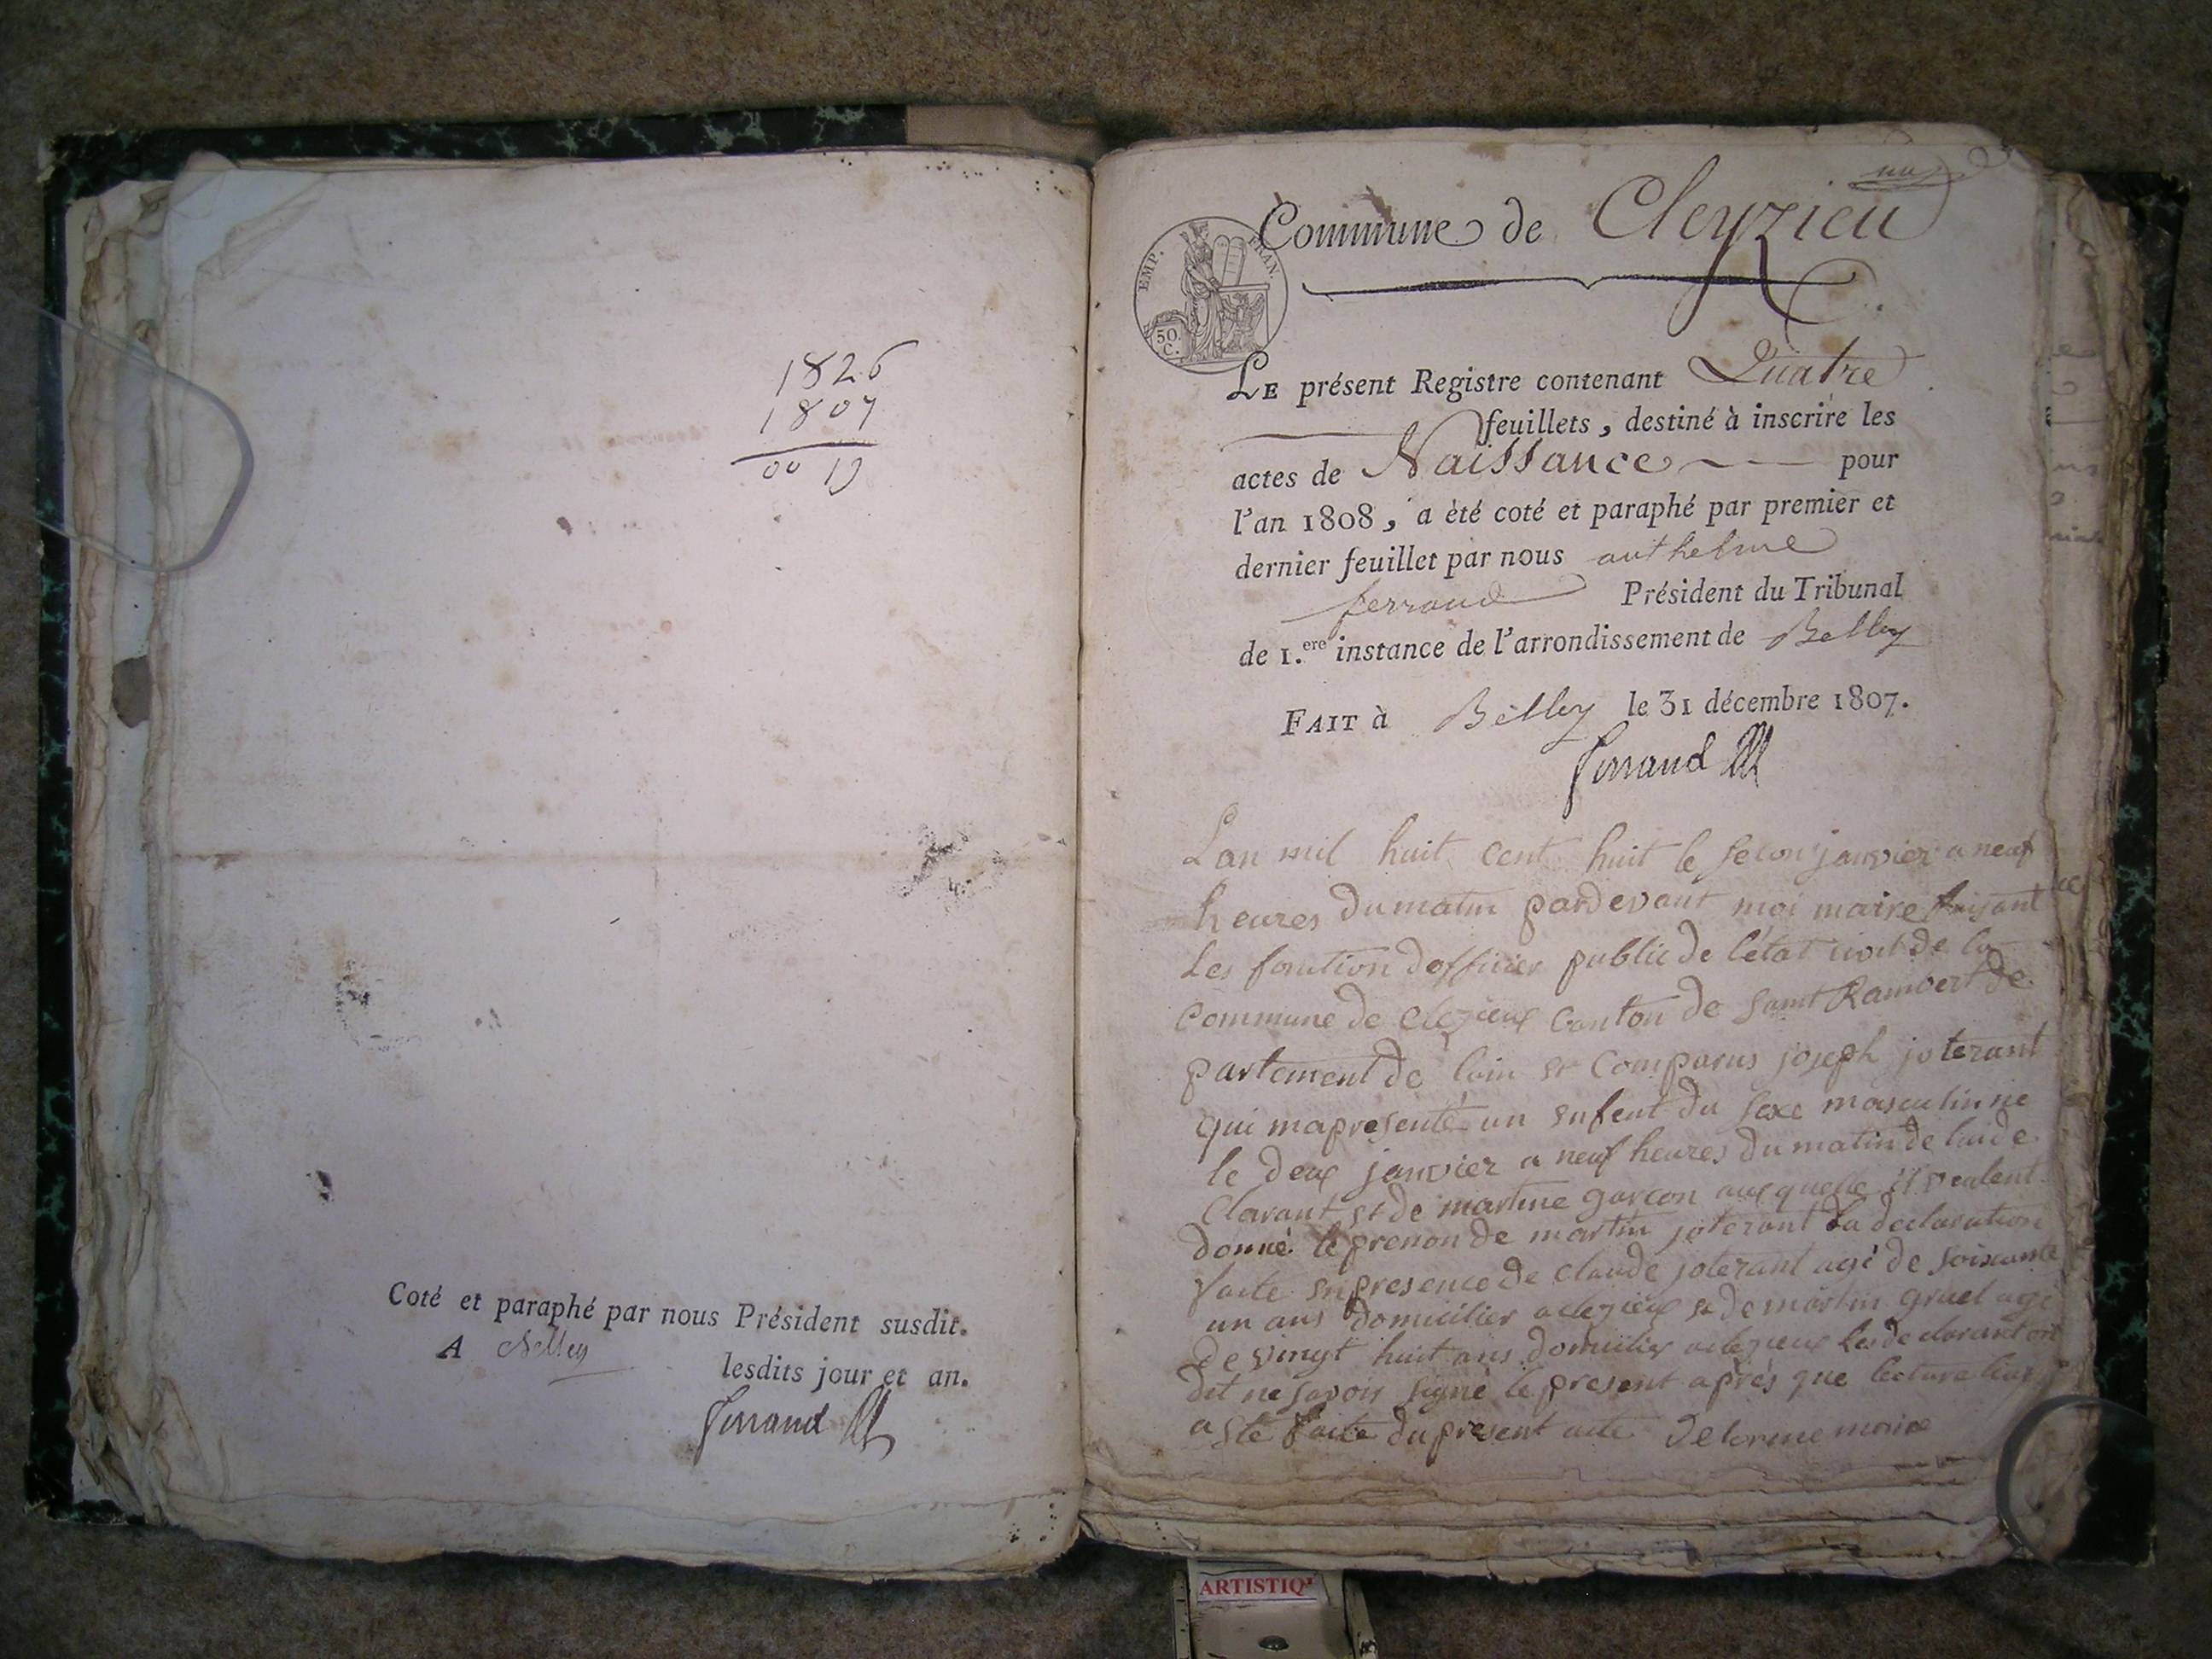 1826
1807
00 19
Coté et paraphé par nous Président susdit.
A Belley
lesdits jour et an.
Ferrand
un
Commune de Cleyzieu
EMP. FRAN.
50.
C.
LE présent Registre contenant Quatre
feuillets, destiné à inscrire les
actes de Naissance pour
l'an 1808, a èté coté et paraphé par premier et
dernier feuillet par nous anthelme
ferrand Président du Tribunal
de 1.ere instance de l'arrondissement de Belley
FAIT à Belley le 31 décembre 1807.
Ferrand
Lan mil huit cent huit le secon janvier a neuf
heures du matin pardevant moi maire faisant
les fonction dofficier public de létat civil de la
Commune de Clezieux Canton de saint Rambert de
partement de lain et Comparus joseph joterant
qui mapresenté un enfent du sexe masculin ne
le deux janvier a neuf heures du matin de lui de
clarant et de martine garcon auxquelle il veulent
donné le prenon de martin joterant La declaration
faite en presence de claude joterant agé de soixante
un ans domicilier a clezieux et de martin gruel agé
de vingt huit ans domicilier a clezieux les declarant on
dit ne savoir signé le present après que lecture leur
a Eté faite du present acte Delorme maire
ARTISTIQ